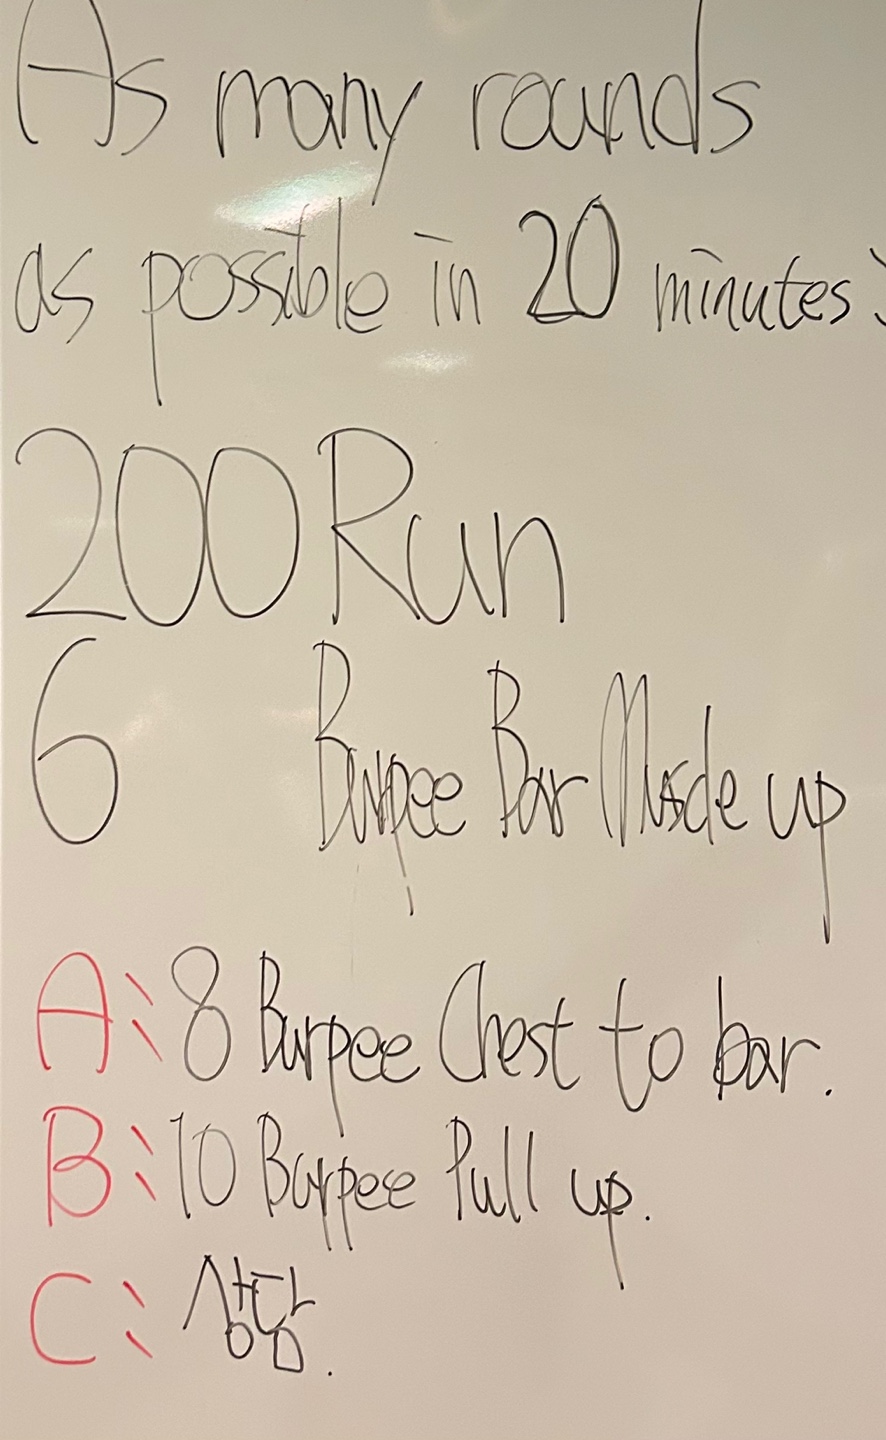 As many rounds
as possible in 20 minutes:
200 Run
6 Burpee Bar Muscle up
A: 8 Burpee Chest to bar.
B: 10 Burpee Pull up.
C: 상담.